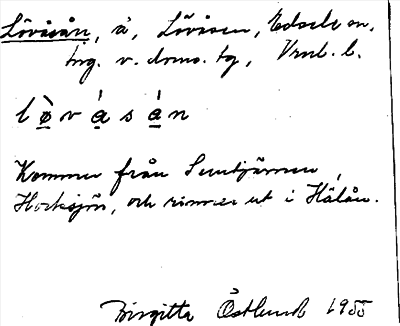 Lövåsån, å, Lövåsen, Edsele sn,
Ång. v. doms. tg, Vnl. l.
l ö̀ v ǻ s ǻ n
Kommer från Sundtjärnen,
Hocksjön, och rinner ut i Hälån.
Birgitta Östlund 1955